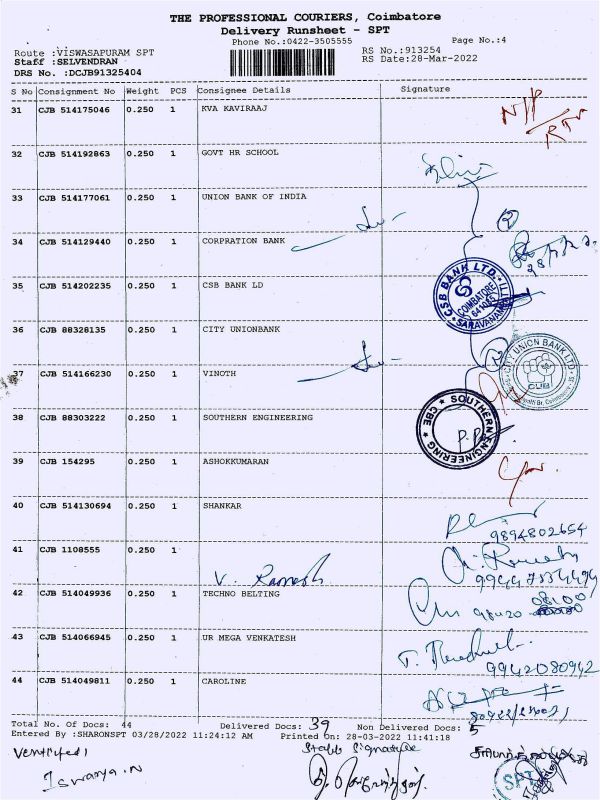 THE PROFESSIONAL COURIERS, Coimbatore
Delivery Runsheet - SPT
Phone No.:0422-3505555 Page No.:4
Route :VISWASAPURAM SPT RS No.:913254
Staff :SELVENDRAN RS Date:28-Mar-2022
DRS No. :DCJB91325404
S No Consignment No Weight PCS Consignee Details Signature
31 CJB 514175046 0.250 1 KVA KAVIRAAJ
32 CJB 514192863 0.250 1 GOVT HR SCHOOL
33 CJB 514177061 0.250 1 UNION BANK OF INDIA
34 CJB 514129440 0.250 1 CORPRATION BANK
35 CJB 514202235 0.250 1 CSB BANK LD
CSB BANK LTD. COIMBATORE 641035
36 CJB 88328135 0.250 1 CITY UNIONBANK
CITY UNION BANK LTD. CUB
37 CJB 514166230 0.250 1 VINOTH
38 CJB 88303222 0.250 1 SOUTHERN ENGINEERING
SOUTHERN ENGINEERING CBE
39 CJB 154295 0.250 1 ASHOKKUMARAN
40 CJB 514130694 0.250 1 SHANKAR
9894802654
41 CJB 1108555 0.250 1
V. Ramesh
42 CJB 514049936 0.250 1 TECHNO BELTING
43 CJB 514066945 0.250 1 UR MEGA VENKATESH
9942080942
44 CJB 514049811 0.250 1 CAROLINE
Total No. Of Docs: 44 Delivered Docs: 39 Non Delivered Docs: 5
Entered By :SHARONSPT 03/28/2022 11:24:12 AM Printed On: 28-03-2022 11:41:18
Iswarya.N
SPT